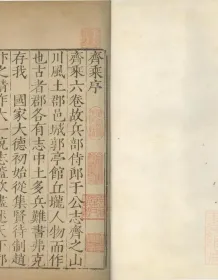 齊乗序
齊乗六卷故兵部侍郎于公志齊之山
川風土郡邑城郭亭館丘壠人物而作
也古者郡各有志中土多兵難書弗克
存我 國家大德初始從集賢待制趙
忭之請作大一統志蓋欲盡述天下都